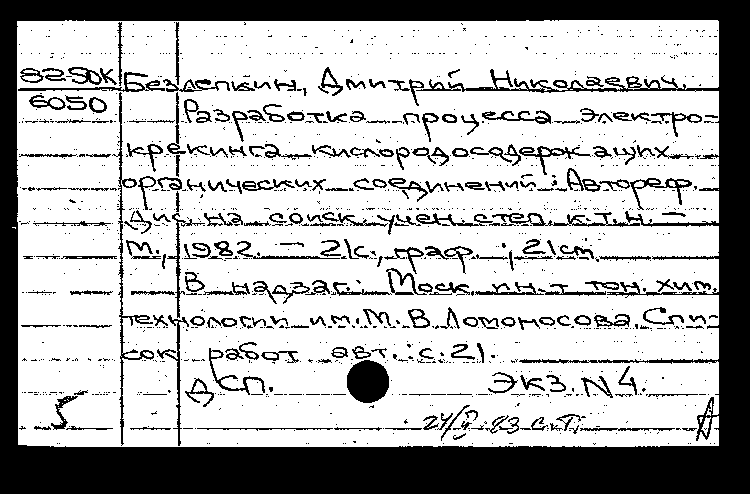 82-50К Безлепкин, Дмитрий Николаевич.
6050 Разработка процесса электро-
крекинга кислородосодержащих
органических соединений : Автореф.
Дис. на соиск. учен. степ. к.т.н. —
М., 1982. — 21с., граф. ; 21см.
В надзаг.: Моск. ин-т тон. хим.
технологии им. М.В. Ломоносова. Спи-
сок работ авт.: с. 21.
ДСП. ЭКЗ. N 4.
5